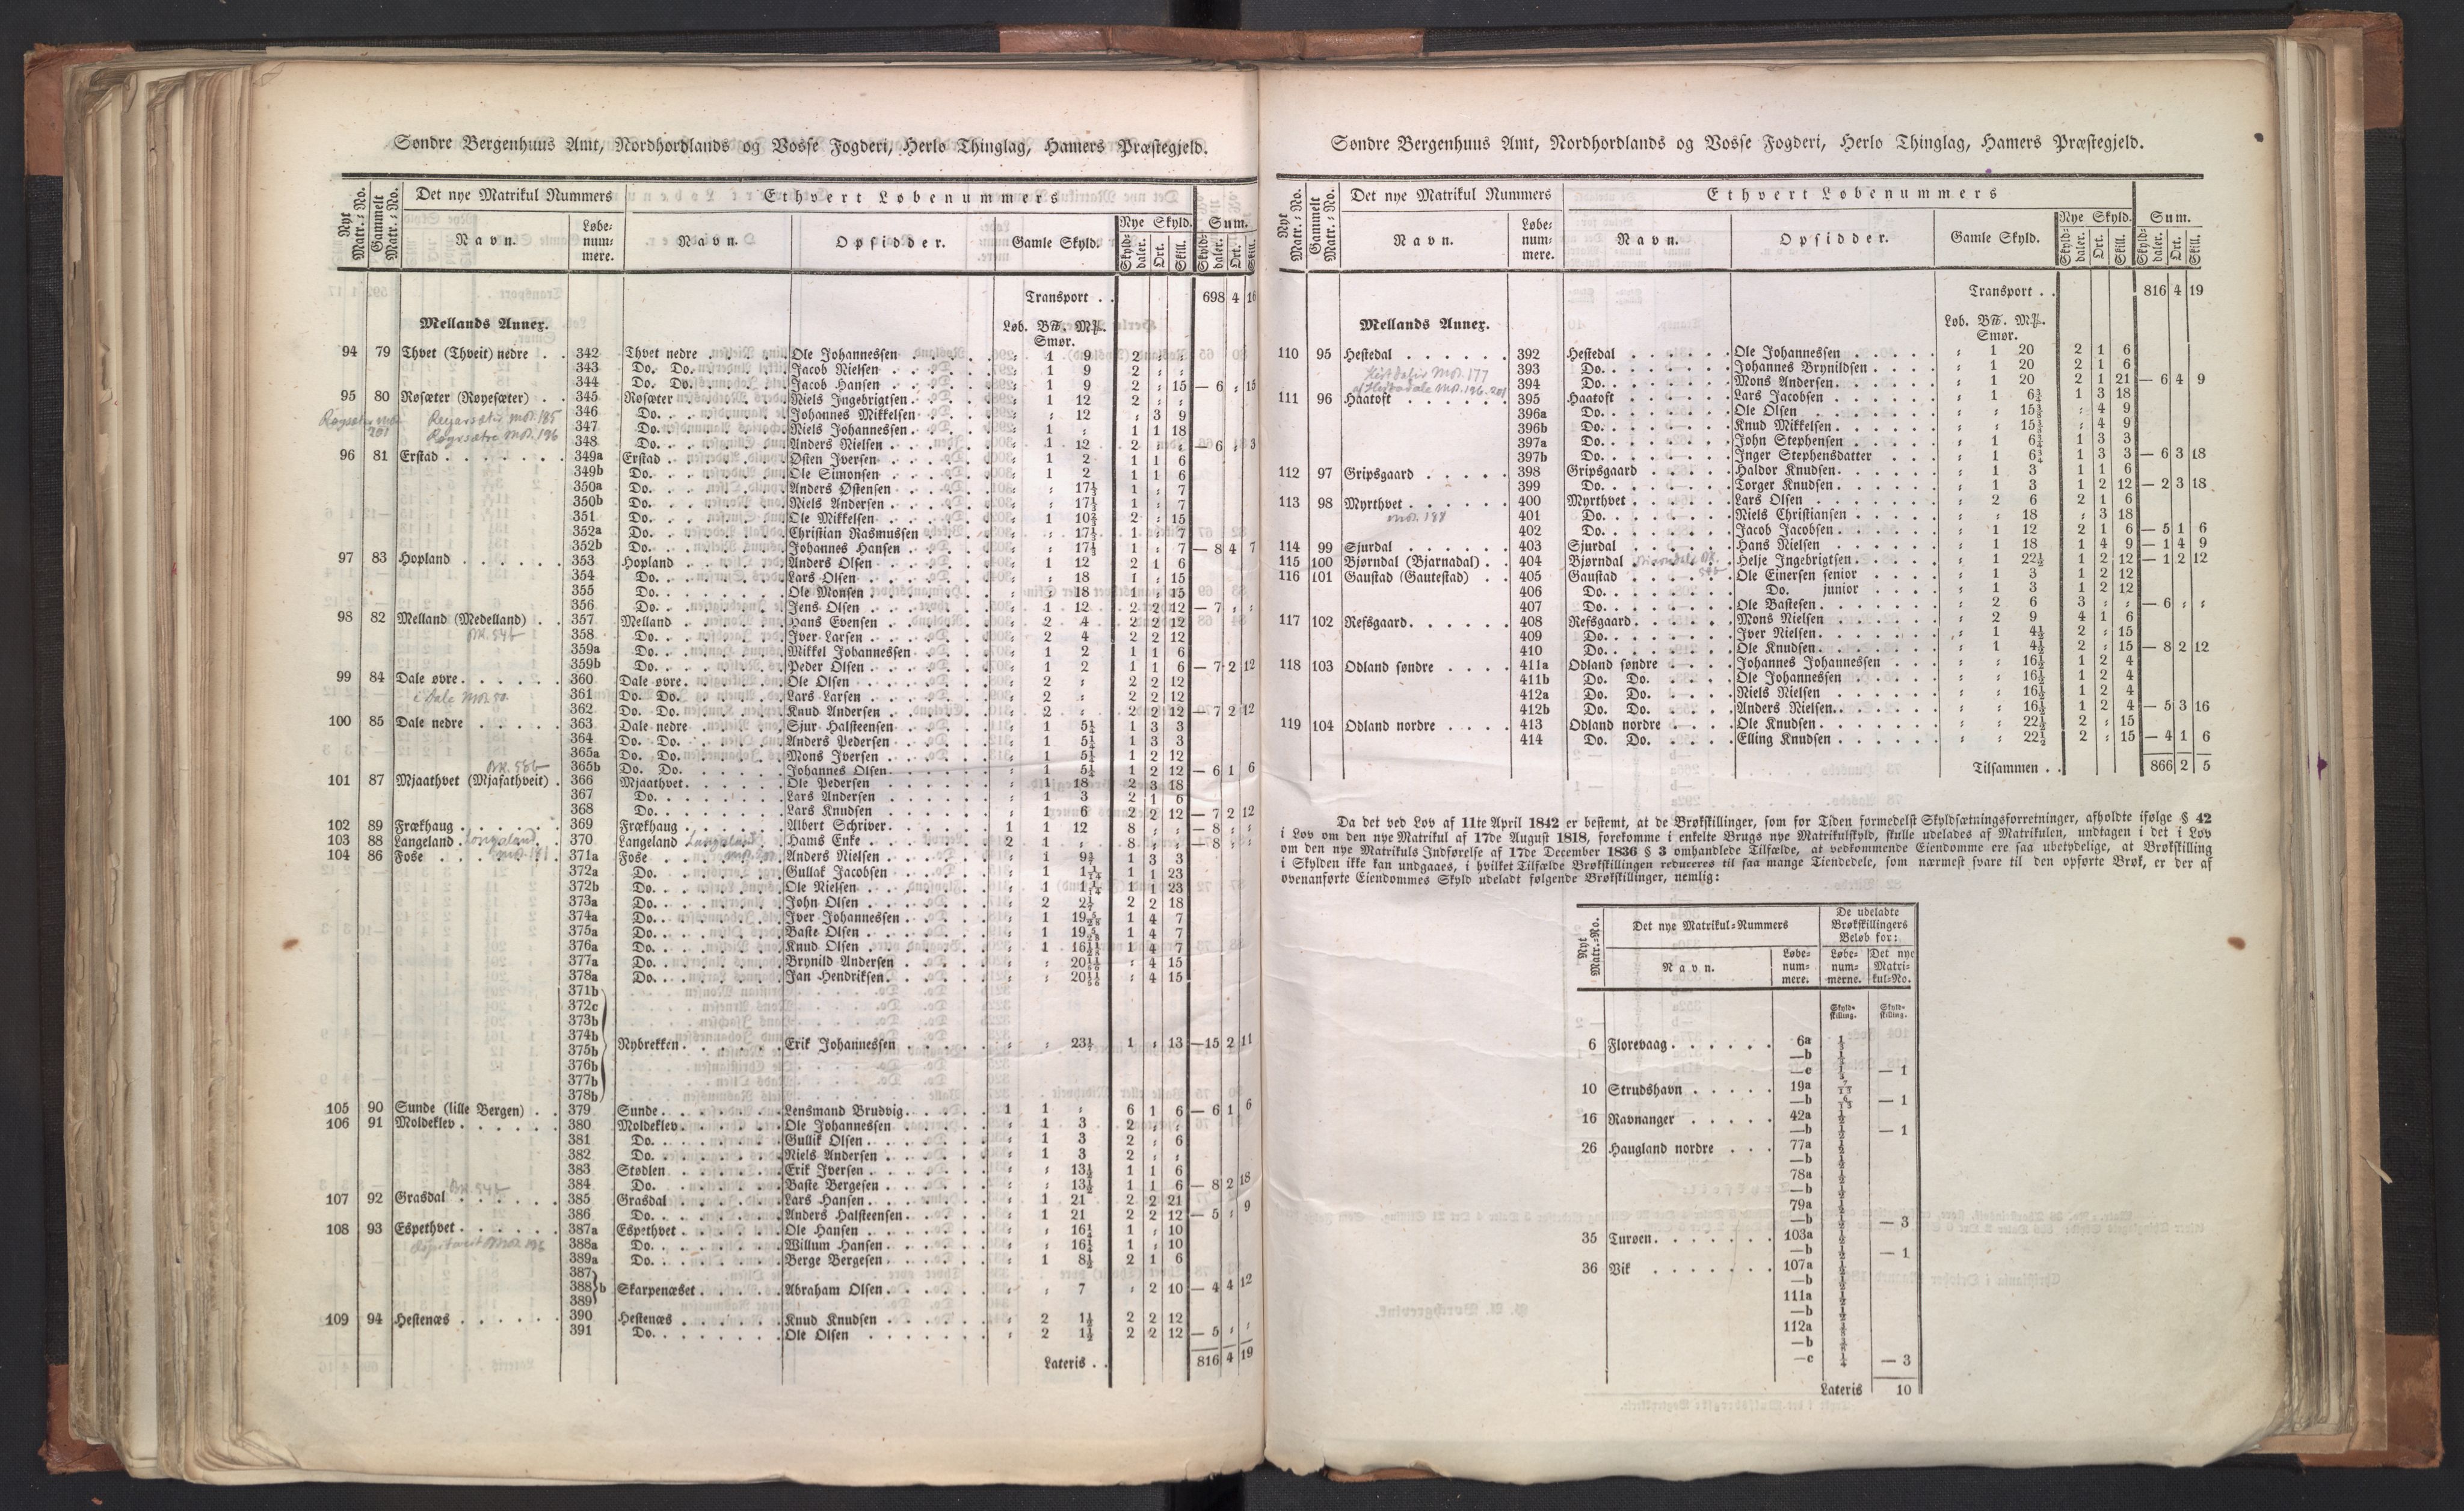 Søndre Bergenhuus Amt, Nordhordlands og Vosse Fogderi, Herlo Thinglag, Hamers Præstegjeld.
Nyt Matr.-No. | Gammelt Matr.-No. | Det nye Matrikul Nummers | Ethvert Løbenummers
Navn. | Løbe-nummere. | Navn. | Opsidder. | Gamle Skyld. | Nye Skyld. | Sum.
Skylddaler. | Ort. | Skill. | Skylddaler. | Ort. | Skill.
Transport . . 698 4 16
Mellands Annex. Løb. B℔. M℔.
Smør.
94 79 Thvet (Thveit) nedre . . 342 Thvet nedre Ole Johannessen " 1 9 2 " "
343 Do. Do. Jacob Nielsen " 1 9 2 " "
344 Do. Do. Jacob Hansen " 1 9 2 " 15 — 6 " 15
95 80 Røsæter (Røyesæter) . . 345 Røsæter Niels Ingebrigtsen " 1 12 2 " "
346 Do. Johannes Mikkelsen " " 12 " 3 9
347 Do. Niels Johannessen " 1 " 1 1 18
348 Do. Anders Nielsen " 1 12 2 " " — 6 " 3
96 81 Erstad 349a Erstad Østen Iversen " 1 2 1 1 6
349b Do. Ole Simonsen " 1 2 1 1 6
350a Do. Anders Østensen " " 17⅓ 1 " 7
350b Do. Niels Andersen " " 17⅓ 1 " 7
351 Do. Ole Mikkelsen " 1 10⅔ 2 " 15
352a Do. Christian Rasmussen " " 17⅓ 1 " 7
352b Do. Johannes Hansen " " 17⅓ 1 " 7 — 8 4 7
97 83 Hopland 353 Hopland Anders Olsen " 1 12 2 1 6
354 Do. Lars Olsen " " 18 1 " 15
355 Do. Ole Monsen " " 18 1 " 15
356 Do. Jens Olsen " 1 12 2 2 12 — 7 " "
98 82 Melland (Medelland) . . 357 Melland Hans Evensen " 2 4 2 2 12
358 Do. Iver Larsen " 2 4 2 2 12
359a Do. Mikkel Johannessen " 1 2 1 1 6
359b Do. Peder Olsen " 1 2 1 1 6 — 7 2 12
99 84 Dale øvre 360 Dale øvre Ole Olsen " 2 " 2 2 12
361 Do. Do. Lars Larsen " 2 " 2 2 12
362 Do. Do. Knud Andersen " 2 " 2 2 12 — 7 2 12
100 85 Dale nedre 363 Dale nedre Sjur Halsteensen " 1 5¼ 1 3 3
364 Do. Do. Anders Pedersen " 1 5¼ 1 3 3
365a Do. Do. Mons Iversen " 1 5¼ 1 2 12
365b Do. Do. Johannes Olsen " 1 5¼ 1 2 12 — 6 1 6
101 87 Mjaathvet (Mjafathveit) . 366 Mjaathvet Ole Pedersen " 1 18 2 3 18
367 Do. Lars Andersen " 1 3 2 1 6
368 Do. Lars Knudsen " 1 6 2 2 12 — 7 2 12
102 89 Frækhaug 369 Frækhaug Albert Schriver 1 1 12 8 " " — 8 " "
103 88 Langeland 370 Langeland Hams Enke 2 1 " 8 " " — 8 " "
104 86 Fose 371a Fose Anders Nielsen " 1 1 3 3
372a Do. Gullak Jacobsen " 1 1 1 23
372b Do. Ole Nielsen " 1 1 1 23
373a Do. John Olsen " 2 2 2 18
374a Do. Iver Johannessen " 1 1 4 7
375a Do. Baste Olsen " 1 1 4 7
376a Do. Knud Olsen " 1 1 4 7
377a Do. Brynild Andersen " " " 4 15
378a Do. Jan Hendriksen " " " 4 15
371b
372c
373b
374b
375b Nybrekken Erik Johannessen " " 1 " 13 — 15 2 11
376b
377b
378b
105 90 Sunde (lille Bergen) . . 379 Sunde Lensmand Brudvig 1 1 " 6 1 6 — 6 1 6
106 91 Moldeklev 380 Moldeklev Ole Johannessen " 1 3 2 " "
381 Do. Gullik Olsen " 1 3 2 " 6
382 Do. Niels Andersen " 1 3 2 " "
383 Stødlen Erik Iversen " " 13½ 1 1 6
384 Do. Baste Bergesen " " 13½ 1 1 6 — 8 2 18
107 92 Grasdal 385 Grasdal Lars Hansen " 1 21 2 2 21
386 Do. Anders Halsteensen " 1 21 2 2 12 — 5 " 9
108 93 Espethvet 387a Espethvet Ole Hansen " " 16¼ 1 " 10
388a Do. Willum Hansen " " 16¼ 1 " 10
389a Do. Berge Bergesen " 1 8½ 2 1 6
387
388 b Skarpenæset Abraham Olsen " " 7 " 2 10 — 4 4 12
389
109 94 Hestenæs 390 Hestenæs Knud Knudsen " 2 1½ 2 2 12
391 Do. Ole Olsen " 2 1½ 2 2 12 — 5 " "
Lateris . . 816 4 19
Søndre Bergenhuus Amt, Nordhordlands og Vosse Fogderi, Herlo Thinglag, Hamers Præstegjeld.
Nyt Matr.-No. | Gammelt Matr.-No. | Det nye Matrikul Nummers | Ethvert Løbenummers
Navn. | Løbe-nummere. | Navn. | Opsidder. | Gamle Skyld. | Nye Skyld. | Sum.
Skylddaler. | Ort. | Skill. | Skylddaler. | Ort. | Skill.
Transport . . 816 4 19
Mellands Annex. Løb. B℔. M℔.
Smør.
110 95 Hestedal 392 Hestedal Ole Johannessen " 1 20 2 1 6
393 Do. Johannes Brynildsen " 1 20 2 1 6
394 Do. Mons Andersen " 1 20 2 1 21 — 6 4 9
111 96 Haatoft 395 Haatoft Lars Jacobsen " 1 6¾ 1 3 18
396a Do. Ole Olsen " " 15⅜ " 4 9
396b Do. Knud Mikkelsen " " 15⅜ " 4 9
397a Do. John Stephensen " 1 6¾ 1 3 3
397b Do. Inger Stephensdatter " 1 6¾ 1 3 3 — 6 3 18
112 97 Gripsgaard 398 Gripsgaard Haldor Knudsen " 1 3 1 1 6
399 Do. Torger Knudsen " 1 3 1 2 12 — 2 3 18
113 98 Myrthvet 400 Myrthvet Lars Olsen " 2 6 2 1 6
401 Do. Niels Christiansen " " 18 " 3 18
402 Do. Jacob Jacobsen " 1 12 2 1 6 — 5 1 6
114 99 Sjurdal 403 Sjurdal Hans Nielsen " 1 18 1 4 9 — 1 4 9
115 100 Bjørndal (Bjarnadal) . . 404 Bjørndal Helje Ingebrigtsen " 1 22½ 1 2 12 — 1 2 12
116 101 Gaustad (Gautestad) . . 405 Gaustad Ole Einersen senior " 1 3 1 2 12
406 Do. Do. junior " 1 3 1 2 12
407 Do. Ole Bastesen " 2 6 3 " " — 6 " "
117 102 Refsgaard 408 Refsgaard Mons Nielsen " 2 9 4 1 6
409 Do. Iver Nielsen " 1 4½ 2 " 15
410 Do. Ole Knudsen " 1 4½ 2 " 15 — 8 2 12
118 103 Odland søndre 411a Odland søndre Johannes Johannessen " " 16½ 1 2 4
411b Do. Do. Ole Johannessen " " 16½ 1 2 4
412a Do. Do. Niels Nielsen " " 16½ 1 2 4
412b Do. Do. Anders Nielsen " " 16½ 1 2 4 — 5 3 16
119 104 Odland nordre 413 Odland nordre Ole Knudsen " " 22½ 2 " 15
414 Do. Do. Elling Knudsen " " 22½ 2 " 15 — 4 1 6
Tilsammen . . 866 2 5
Da det ved Lov af 11te April 1842 er bestemt, at de Brøkskillinger, som for Tiden formedelst Skyldsætningsforretninger, afholdte ifølge § 42
i Lov om den nye Matrikul af 17de August 1818, forekomme i enkelte Brugs nye Matrikulskyld, skulle udelades af Matrikulen, undtagen i det i Lov
om den nye Matrikuls Indførelse af 17de December 1836 § 3 omhandlede Tilfælde, at vedkommende Eiendomme ere saa ubetydelige, at Brøkskilling
i Skylden ikke kan undgaaes, i hvilket Tilfælde Brøkskillingen reduceres til saa mange Tiendedele, som nærmest svare til den opførte Brøk, er der af
ovenanførte Eiendommes Skyld udeladt følgende Brøkskillinger, nemlig:
Nyt Matr.-No. | Det nye Matrikul-Nummers | De udeladte Brøkskillingers Beløb for:
Navn. | Løbe-nummere. | Løbe-nummerne. | Det nye Matrikul-No.
Skyldskilling. | Skyldskilling.
6 Florevaag 6a ⅓
—b ⅓
—c ⅓ — 1
10 Strudshavn 19a 7/13
—b 6/13 — 1
16 Ravnanger 42a ½
—b ½ — 1
26 Haugland nordre 77a ½
—b ½
78a ½
—b ½
79a ½
—b ½ — 3
35 Turøen 103a ½
—b ½ — 1
36 Vik 107a ½
—b ½
111a ½
—b ½
112a
—b
—c ¼ — 3
Lateris 10